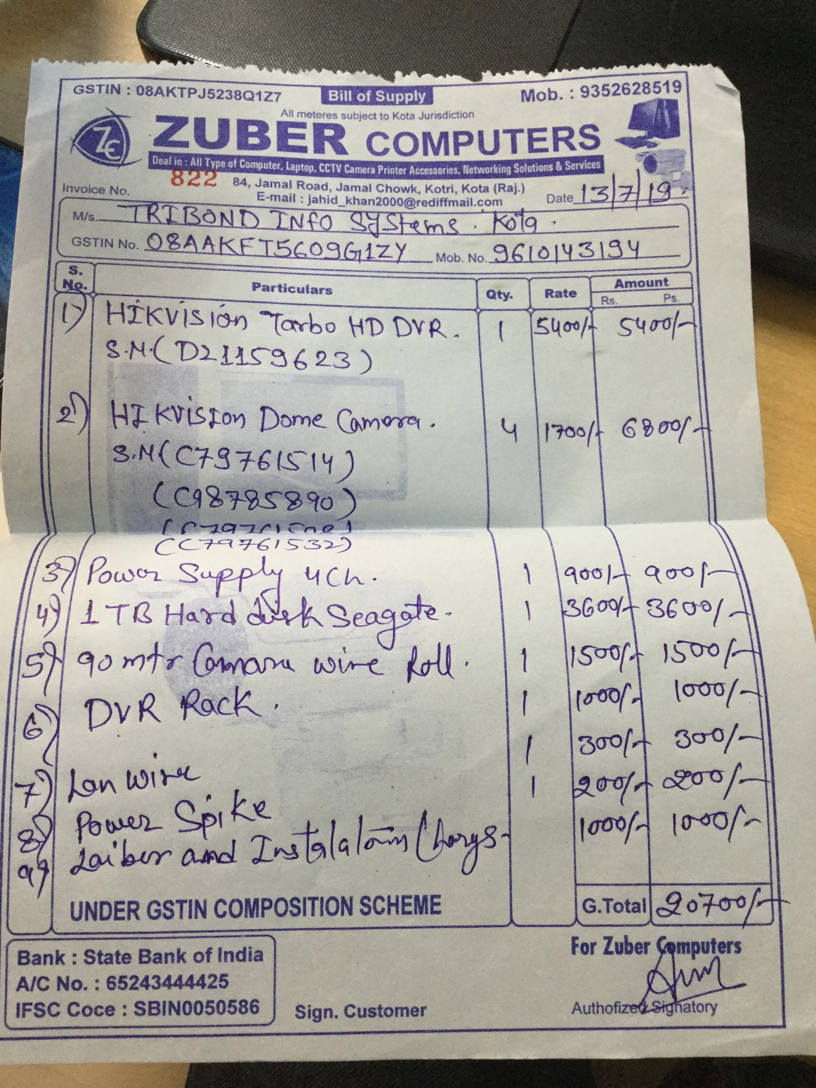 GSTIN : 08AKTPJ5238Q1Z7 Bill of Supply Mob. : 9352628519
All meteres subject to Kota Jurisdiction
ZC ZUBER COMPUTERS
Deal in : All Type of Computer, Laptop, CCTV Camera Printer Accessories, Networking Solutions & Services
Invoice No. 822 84, Jamal Road, Jamal Chowk, Kotri, Kota (Raj.)
E-mail : jahid_khan2000@rediffmail.com Date 13/7/19
M/s. TRIBOND INFO SYStems. Kota.
GSTIN No. 08AAKFT5609G1ZY Mob. No. 9610143194
S. No. Particulars Qty. Rate Amount
Rs. Ps.
1) HIKVISION Tarbo HD DVR. 1 5400/- 5400/-
S.N.(D21159623)
2) HIKVISION Dome Camera. 4 1700/- 6800/-
S.N(C79761514)
(C98785890)
(C79761532)
3) Power Supply 4Ch. 1 900/- 900/-
4) 1 TB Hard disk Seagate. 1 3600/- 3600/-
5) 90 mtr Camara wire Roll. 1 1500/- 1500/-
6) DVR Rack. 1 1000/- 1000/-
7) Lan wire 1 300/- 300/-
8) Power Spike 1 200/- 200/-
9) Laiber and Instalation Chargs- 1000/- 1000/-
UNDER GSTIN COMPOSITION SCHEME G.Total 20700/-
Bank : State Bank of India For Zuber Computers
A/C No. : 65243444425
IFSC Coce : SBIN0050586 Sign. Customer Authofized Signatory